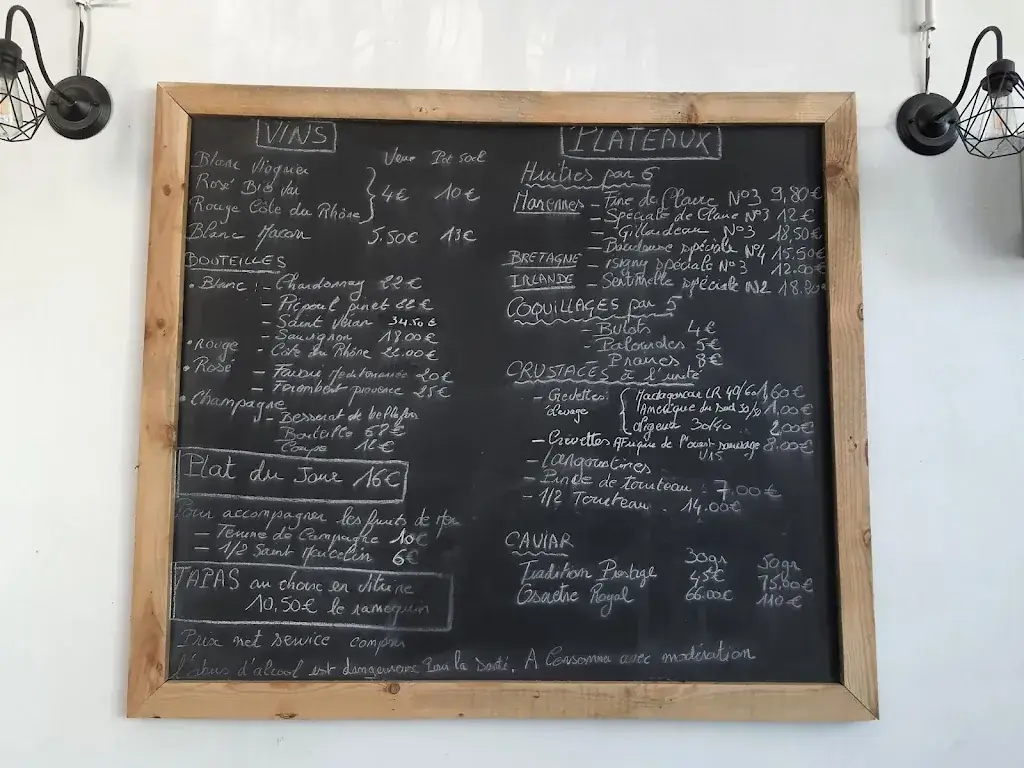 VINS
Verre Pot 50cl
Blanc Viognier
Rosé Bio Var
Rouge Côte du Rhône
4€ 10€
Blanc Macon 5.50€ 13€
BOUTEILLES
• Blanc : - Chardonnay 22€
- Picpoul pinet 22€
- Saint Véran 34.50€
- Sauvignon 18.00€
• ROUGE - Côte du Rhône 22.00€
• Rosé - Mediterranée 20€
- Ferembert provence 25€
• Champagne
- Besserat de bellefon
Bouteille 68€
Coupe 12€
Plat du Jour 16€
Pour accompagner les fruits de Mer
- Terrine de Campagne 10€
- 1/2 Saint Marcelin 6€
TAPAS au choix en vitrine
10,50€ le ramequin
Prix net service compris
l'abus d'alcool est dangereuse pour la santé. A Consommer avec modération
PLATEAUX
Huitres par 6
Marennes - Fine de Claire N°3 9,80€
- Spéciale de Claire N°3 12€
- Gillardeau N°3 18,50€
- spéciale N°4 15.50€
BRETAGNE - Isigny spéciale N°3 12.00€
IRLANDE - Sentinelle spéciale N2 18.90€
COQUILLAGES par 5
- Bulots 4€
- Palourdes 5€
- Praires 8€
CRUSTACES à l'unité
- Crevettes Madagascar CR 40/60 1,60€
élevage l'Amérique du Sud 30/50 1,00€
30/40 2,00€
- Crevettes Afrique de l'ouest sauvage 8.00€
U15
- Langoustines
- Pince de tourteau : 7.00€
- 1/2 Tourteau . 14.00€
CAVIAR
30gr 50gr
Tradition Prestige 45€ 75.00€
Osciètre Royal 66.00€ 110€